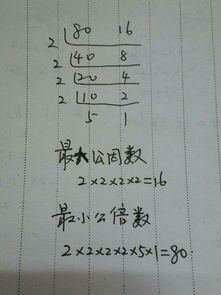 80 16
2 40 8
2 20 4
2 10 2
2 5 1
最大公因数
2×2×2×2=16
最小公倍数
2×2×2×2×5×1=80